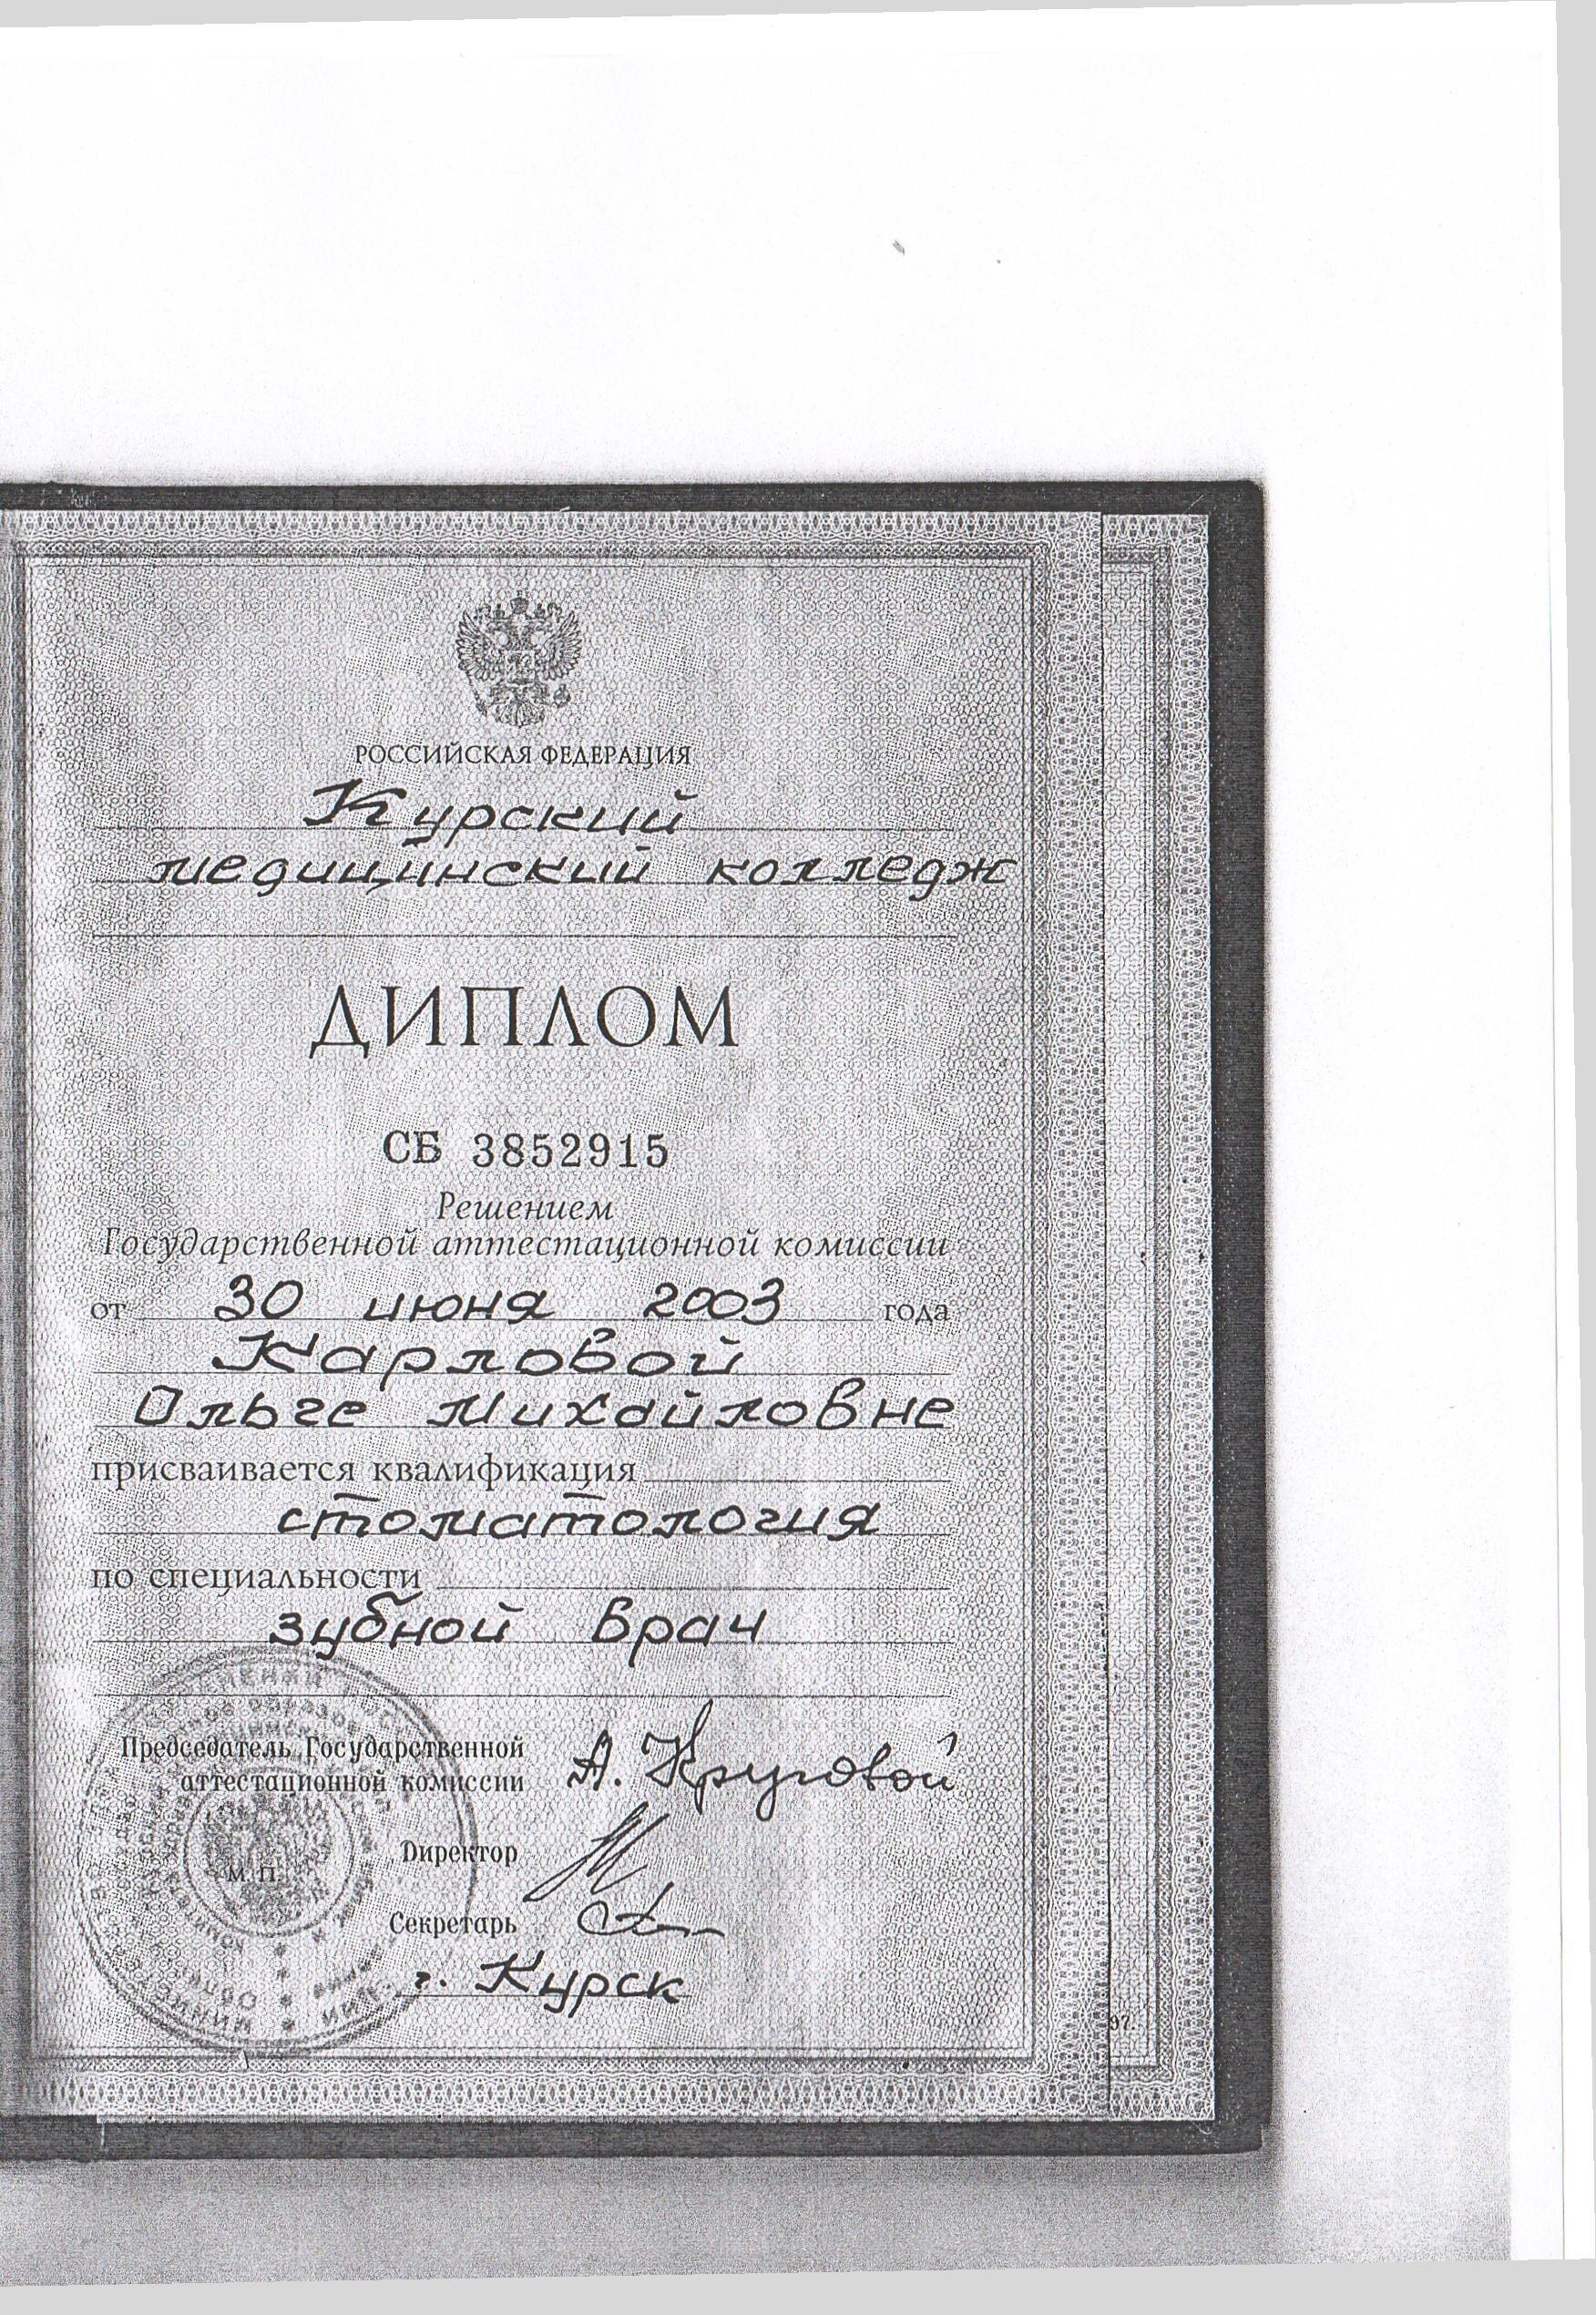 РОССИЙСКАЯ ФЕДЕРАЦИЯ
Курский
медицинский колледж
ДИПЛОМ
СБ 3852915
Решением
Государственной аттестационной комиссии
от 30 июня 2003 года
Карловой
Ольге Михайловне
присваивается квалификация
стоматология
по специальности
зубной врач
Председатель Государственной
аттестационной комиссии А. Круговой
Директор
М. П.
Секретарь
г. Курск
97.